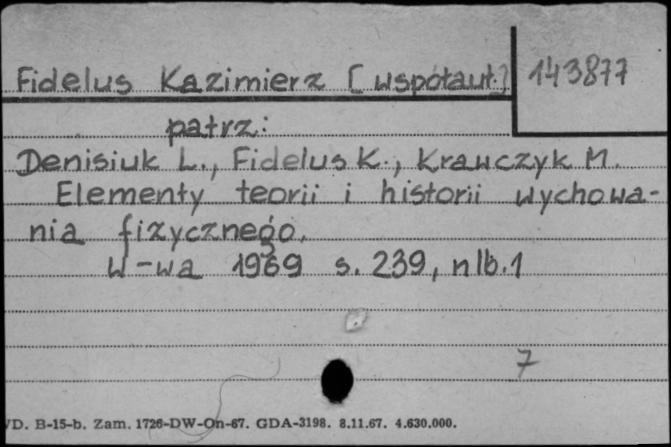 Fidelus Kazimierz [współaut.] 143877
patrz:
Denisiuk L., Fidelus K., Krawczyk M.
Elementy teorii i historii wychowa-
nia fizycznego.
W-wa 1969 s. 239, nlb. 1
7
VD. B-15-b. Zam. 1726-DW-On-67. GDA-3198. 8.11.67. 4.630.000.